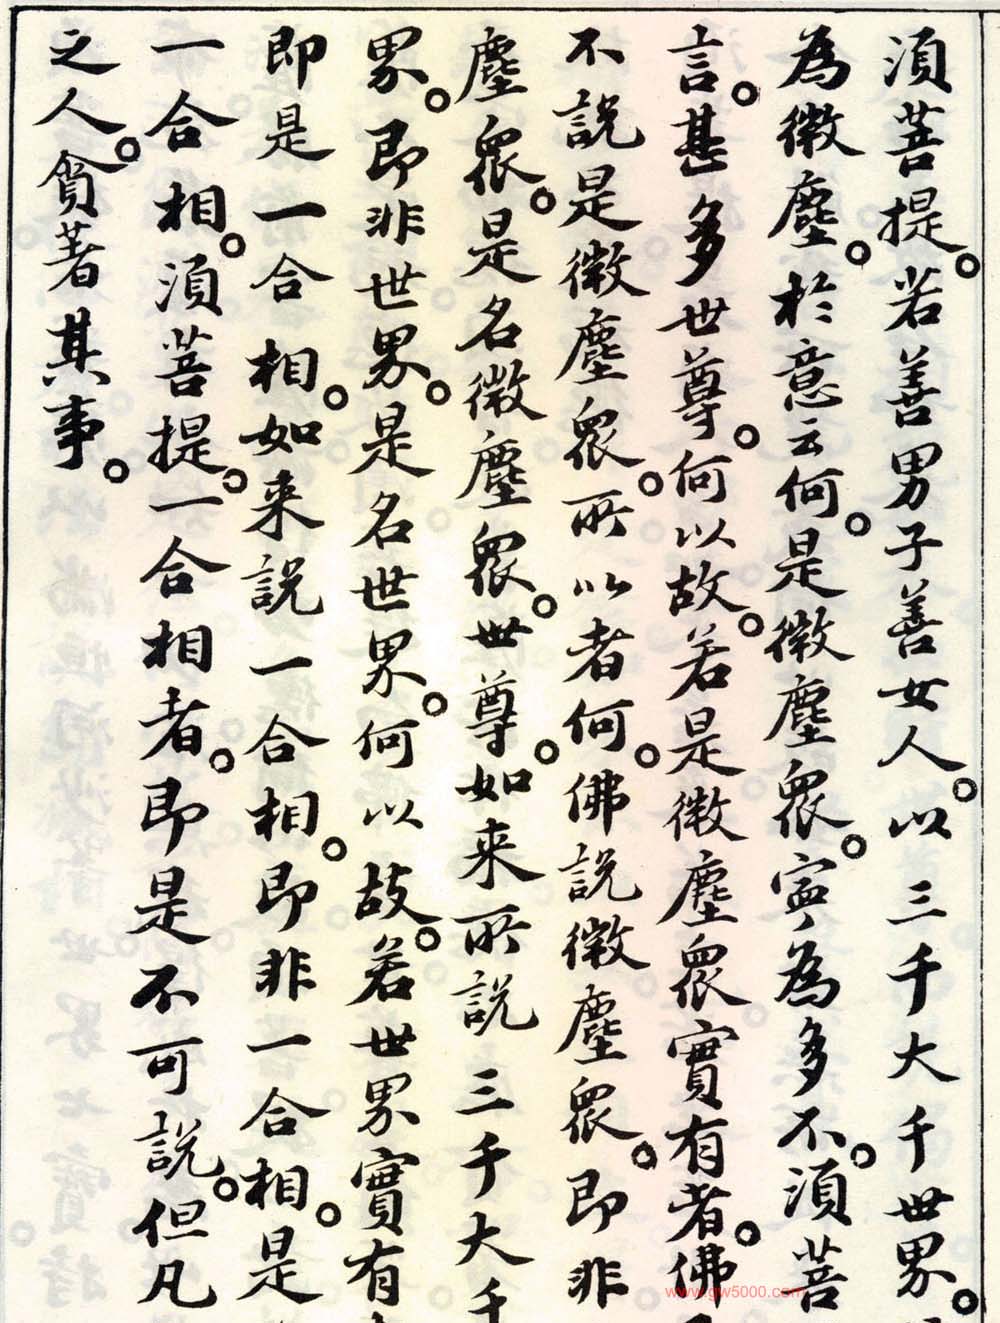 須菩提若善男子善女人以三千大千世界
為微塵於意云何是微塵眾寧為多不須菩
言甚多世尊何以故若是微塵眾實有者佛
不說是微塵眾所以者何佛說微塵眾即非
塵眾是名微塵眾世尊如來所說三千大千
界即非世界是名世界何以故若世界實有
即是一合相如來說一合相即非一合相是
一合相須菩提一合相者即是不可說但凡
之人貪著其事
www.gw5000.com